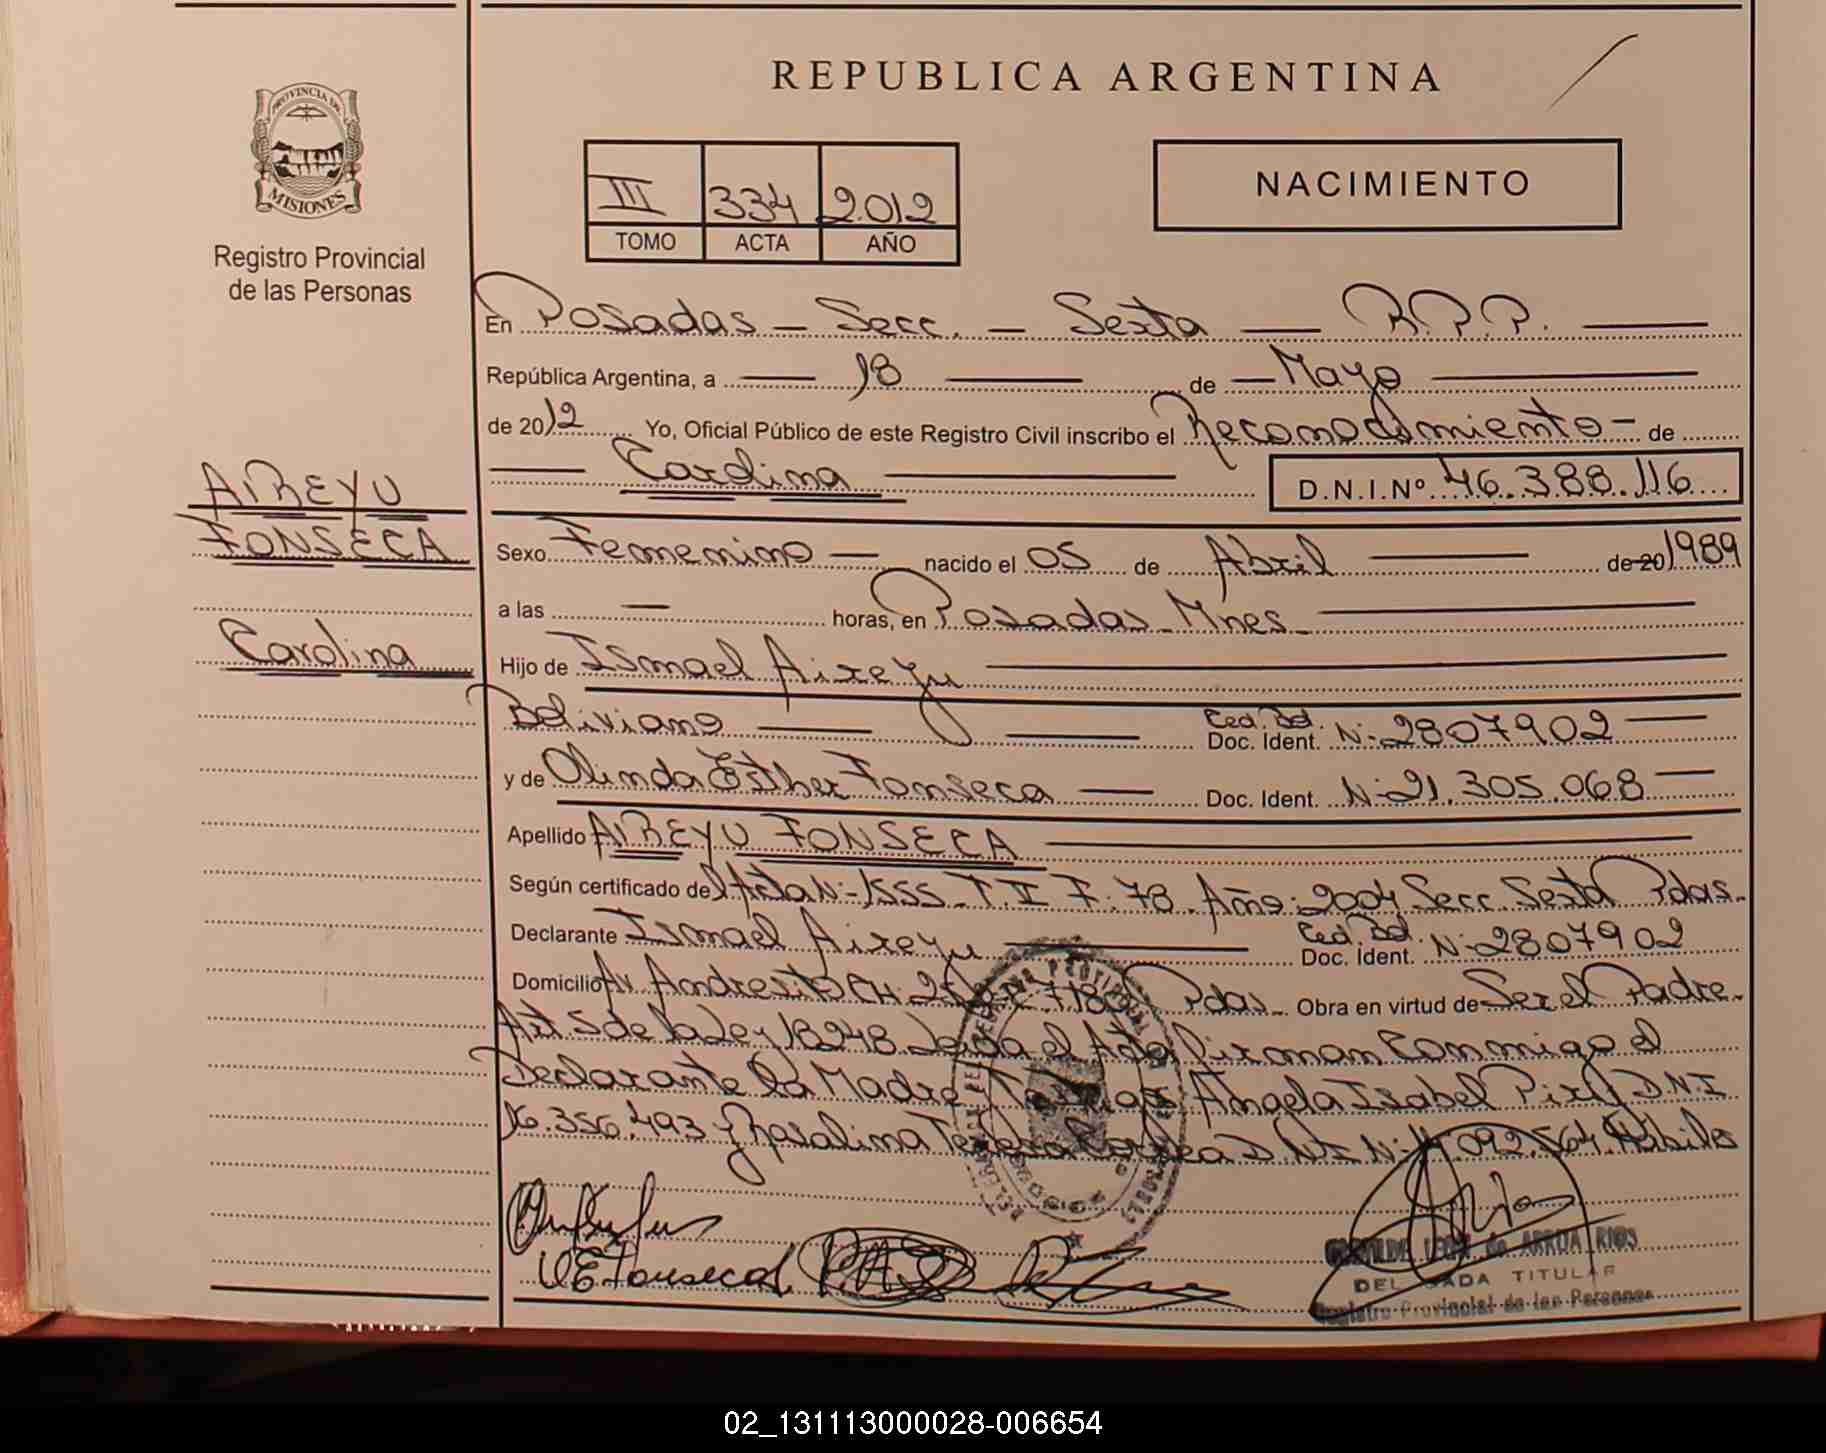 REPUBLICA ARGENTINA
PROVINCIA DE
MISIONES
Registro Provincial
de las Personas
III 334 2012
TOMO ACTA AÑO
NACIMIENTO
En Posadas — Secc. — Sexta — R.P.P. —
República Argentina, a — 18 — de — Mayo —
de 2012 Yo, Oficial Público de este Registro Civil inscribo el Reconocimiento — de
— Carolina — D.N.I.Nº 46.388.116
AIREYU
FONSECA
Carolina
Sexo Femenino — nacido el 05 de Abril — de 20 1989
a las — horas, en Posadas Mnes —
Hijo de Ismael Aireyu —
Boliviano — — Ced. Bol. Doc. Ident. Nº 2807902 —
y de Olinda Esther Fonseca — Doc. Ident. Nº 21.305.068 —
Apellido AIREYU FONSECA —
Según certificado del Acta Nº 1555 T. II F. 78. Año: 2004 Secc. Sexta Pdas.
Declarante Ismael Aireyu — Ced. Bol. Doc. Ident. Nº 2807902
Domicilio Av Andresito CH. Pdas. Obra en virtud de Ser el Padre.
Art. 5 de la Ley 18248 Leida el Acta firman Conmigo el
Declarante la Madre Testigos Angela Isabel D.N.I
16.356.493 y Rosalina Teresa Correa D.N.I Nº 11.092.564. Hábiles
O E Fonseca
DE ARRUA RIOS
DELEGADA TITULAR
Registro Provincial de las Personas
02_131113000028-006654